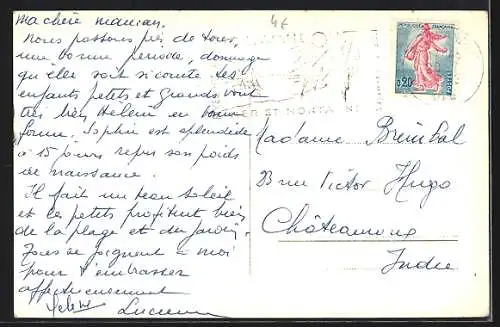 ma chère maman.
Nous passons près de
une bonne période, dommage
qu'elle soit si courte. Les
enfants petits et grands vont
très bien Helein en bonne
forme. Sophie est splendide
à 15 jours repris son poids
de naissance.
Il fait un beau soleil
et les petits profitent bien
de la plage et du jardin.
se joignent à moi
pour t'embrasser
affectueusement
Lucienne
4€
0,20
ER ET MONTAGNE
Madame
83 rue Victor Hugo
Châteauroux
Indre